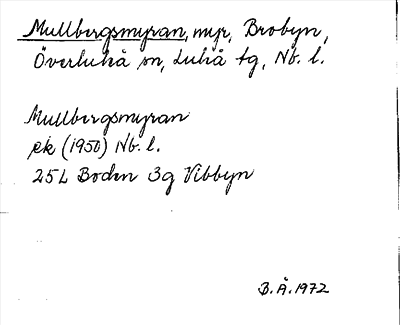 Mullbergsmyran, myr, Brobyn,
Överluleå sn, Luleå tg, Nb. l.
Mullbergsmyran
ek (1950) Nb. l.
25L Boden 3g Vibbyn
B.Å. 1972